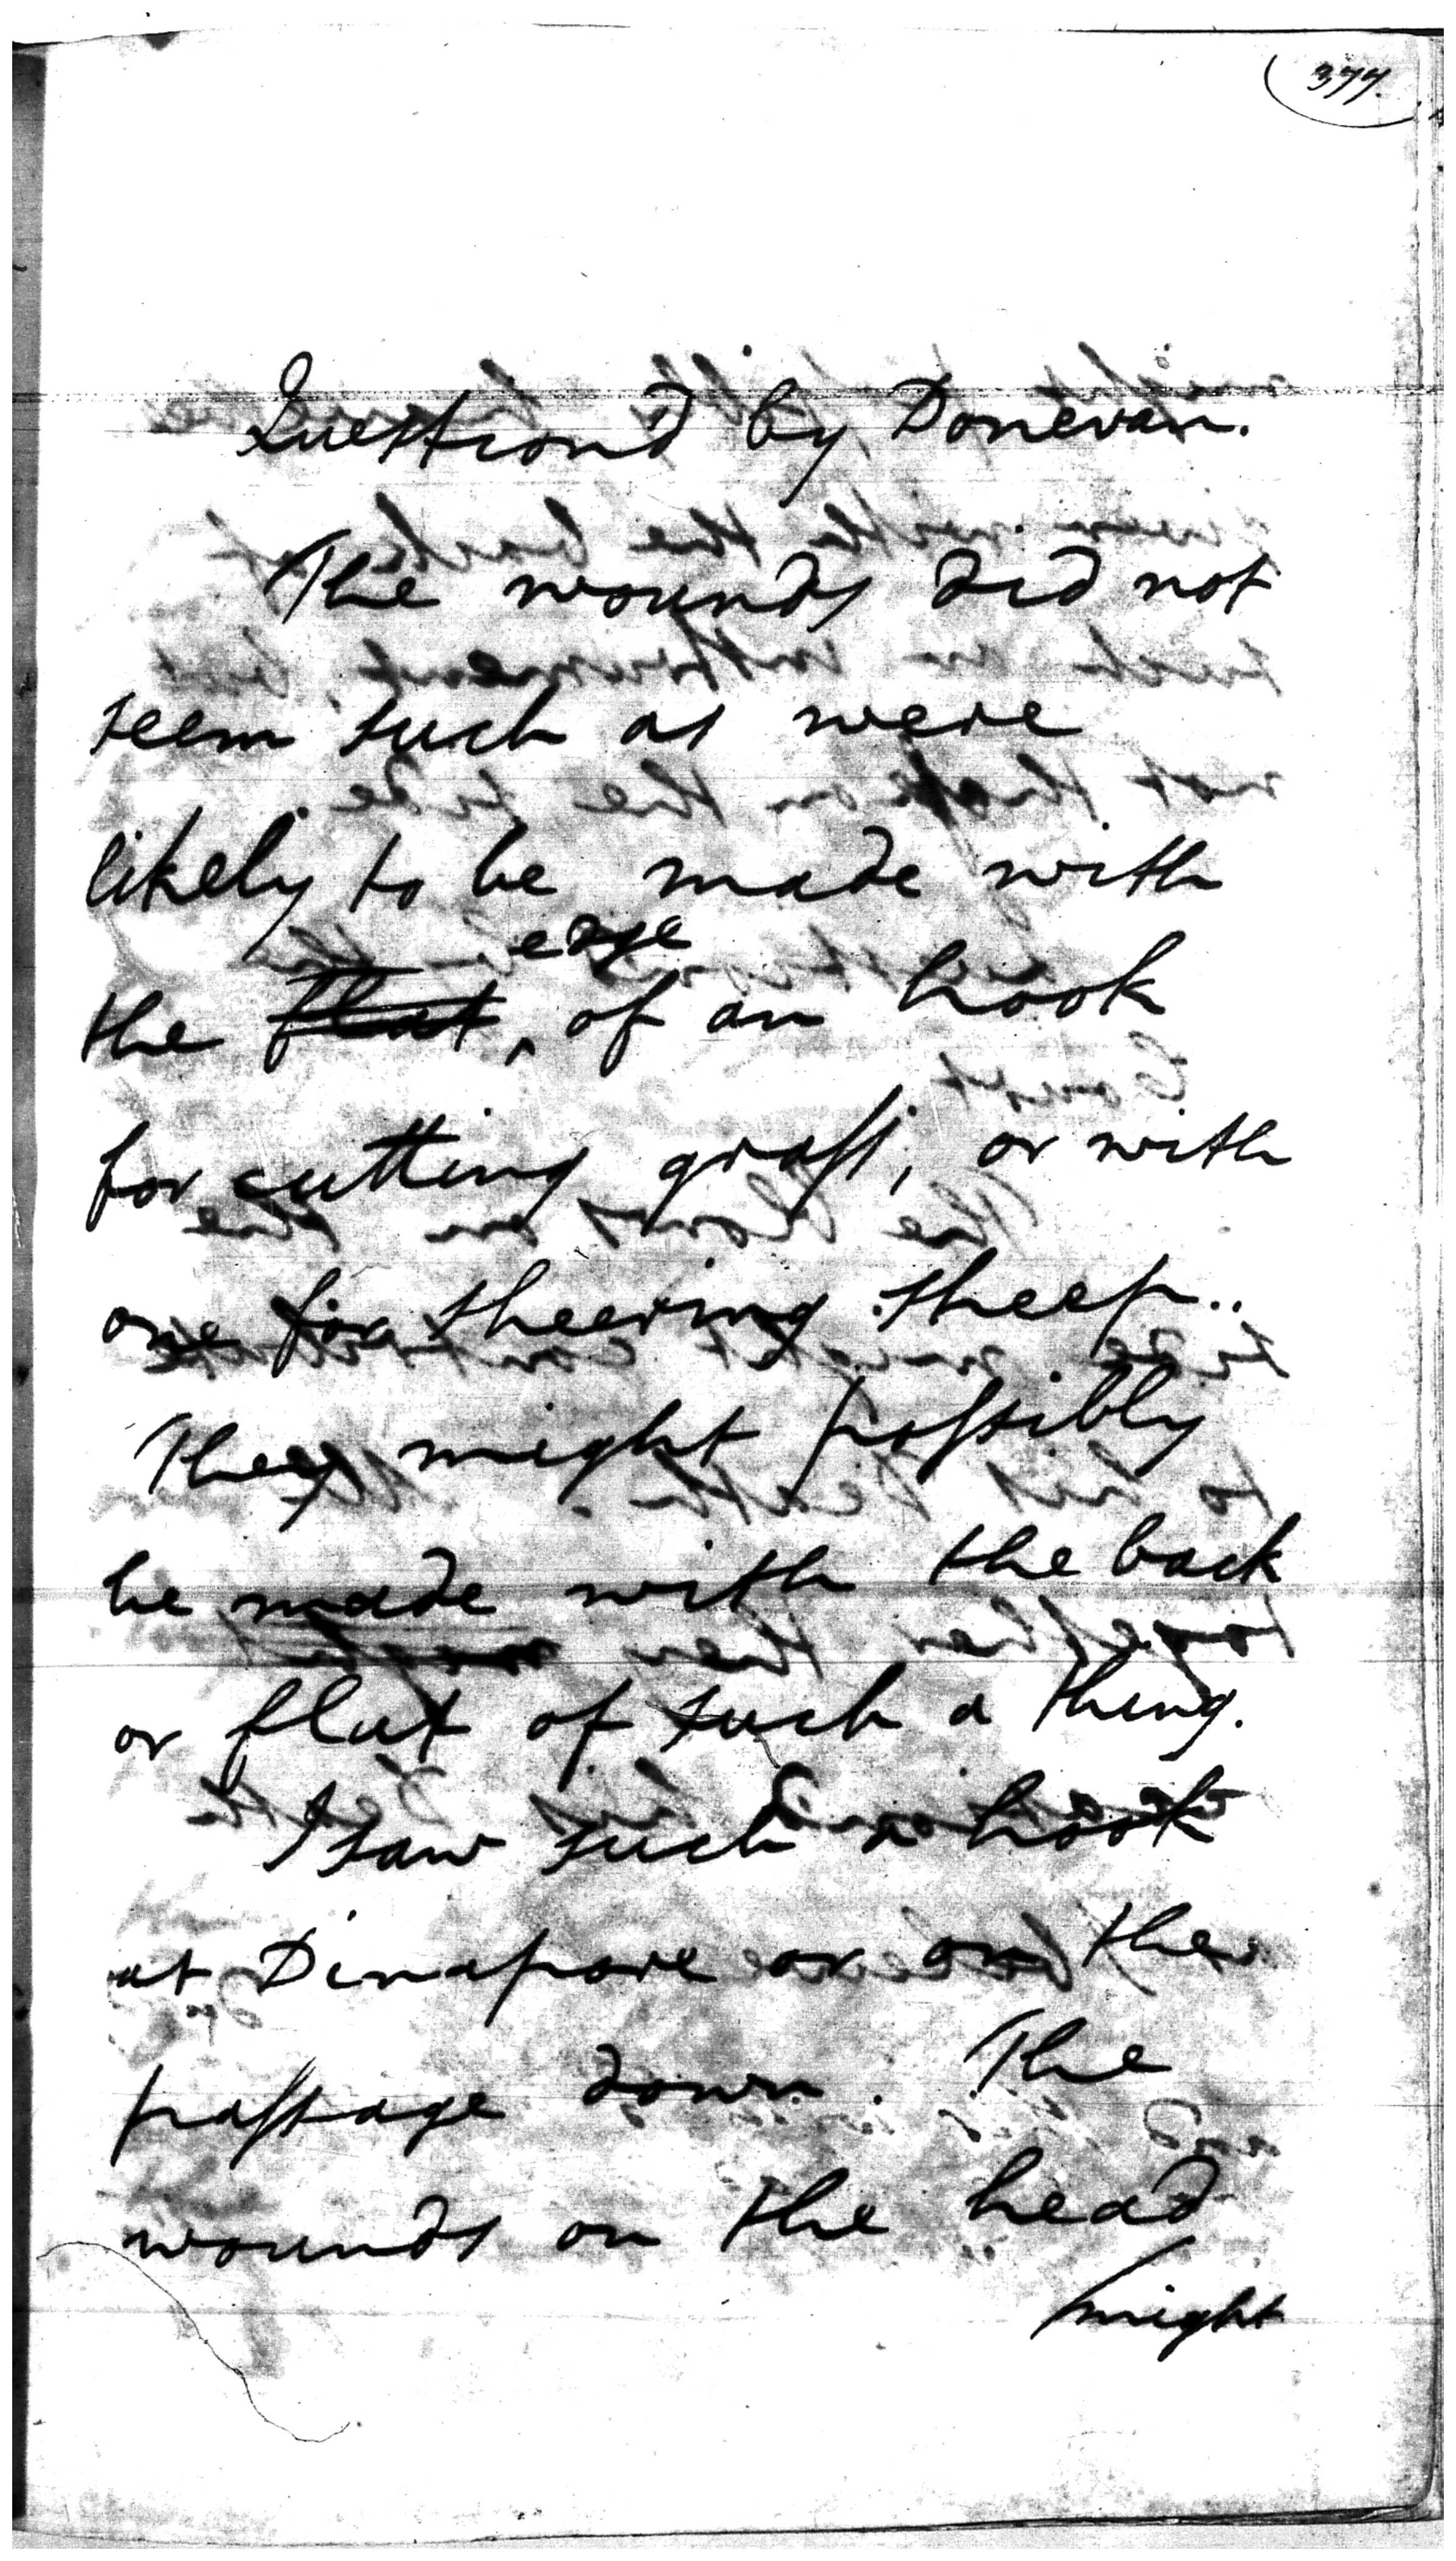 377.
Questiond by Donevan.
The wounds did not
seem such as were
likely to be made with
edge
the flat ‸ of an hook
for cutting grass, or with
one for sheering sheep..
They might possibly
be made with the back
or flat of such a thing.
I saw such a hook
at Dinapore or on the
passage down. The
wounds on the head
/might